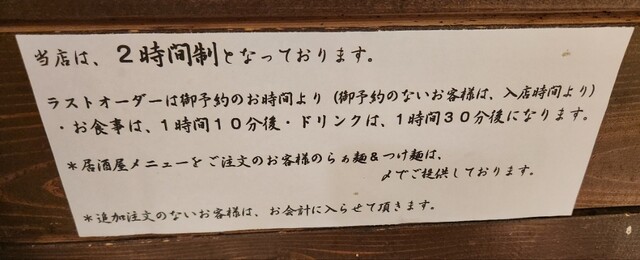 当店は、２時間制となっております。
ラストオーダーは御予約のお時間より（御予約のないお客様は、入店時間より）
・お食事は、１時間１０分後・ドリンクは、１時間３０分後になります。
＊居酒屋メニューをご注文のお客様のらぁ麺＆つけ麺は、
〆でご提供しております。
＊追加注文のないお客様は、お会計に入らせて頂きます。